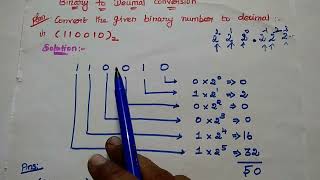 Binary to Decimal conversion
Convert the given binary number to decimal:
(110010)₂
2² 2¹ 2⁰ . 2⁻¹ 2⁻² 2⁻³
Solution:-
1 1 0 0 1 0
0 × 2⁰ ⇒ 0
1 × 2¹ ⇒ 2
0 × 2² ⇒ 0
0 × 2³ ⇒ 0
1 × 2⁴ ⇒ 16
1 × 2⁵ ⇒ 32
50
Ans: